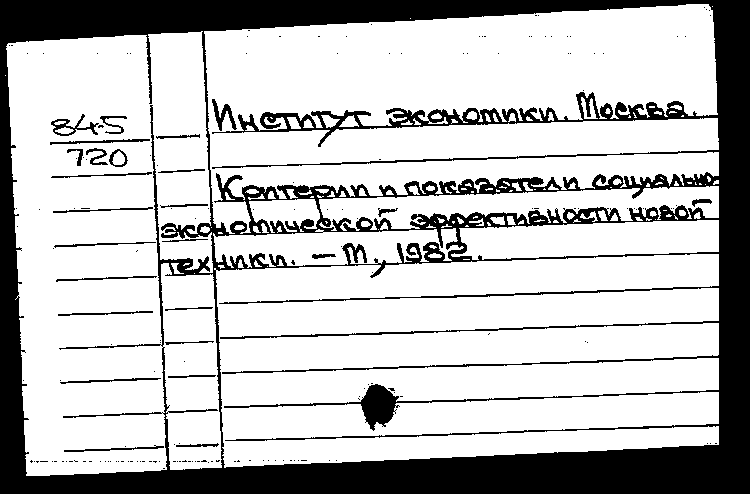 84-5
720
Институт экономики. Москва.
Критерии и показатели социально-
экономической эффективности новой
техники. — М., 1982.